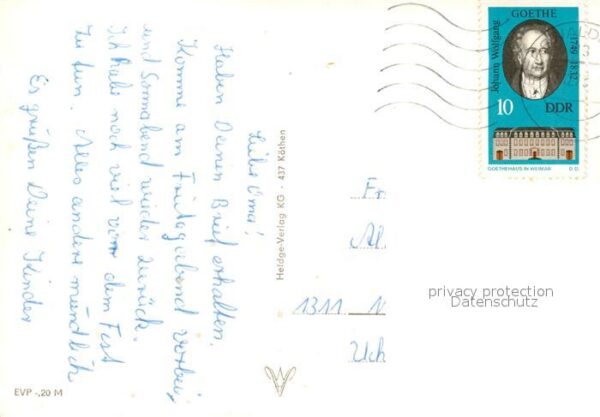 Liebe Oma!
Haben Deinen Brief erhalten.
Komme am Freitagabend vorbei,
und Sonnabend wieder zurück.
Ich habe noch viel vor dem Fest
zu tun. Alles andere mündlich
Es grüßen Deine Kinder
Heldge-Verlag KG - 437 Köthen
EVP -,20 M
Johann Wolfgang
GOETHE
1749-1832
10
DDR
GOETHEHAUS IN WEIMAR
D.D.
Fr
Al
1311 N
Uch
privacy protection
Datenschutz